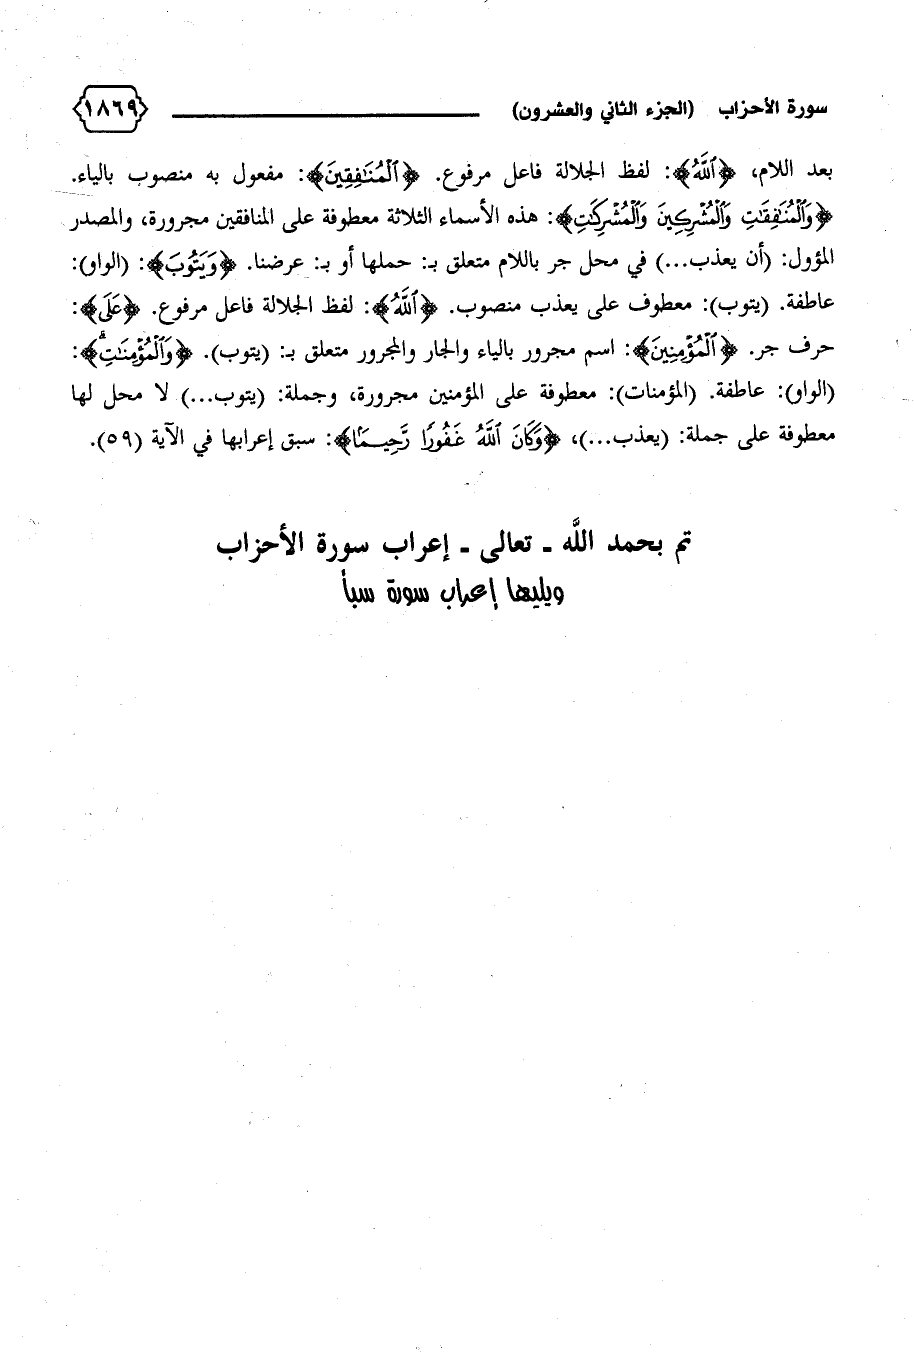 سورة الأحزاب (الجزء الثاني والعشرون) ١٨٦٩
بعد اللام، ﴿ٱللَّهُ﴾: لفظ الجلالة فاعل مرفوع. ﴿ٱلْمُنَٰفِقِينَ﴾: مفعول به منصوب بالياء.
﴿وَٱلْمُنَٰفِقَٰتِ وَٱلْمُشْرِكِينَ وَٱلْمُشْرِكَٰتِ﴾: هذه الأسماء الثلاثة معطوفة على المنافقين مجرورة، والمصدر
المؤول: (أن يعذب...) في محل جر باللام متعلق بـ: حملها أو بـ: عرضنا. ﴿وَيَتُوبَ﴾: (الواو):
عاطفة. (يتوب): معطوف على يعذب منصوب. ﴿ٱللَّهُ﴾: لفظ الجلالة فاعل مرفوع. ﴿عَلَى﴾:
حرف جر. ﴿ٱلْمُؤْمِنِينَ﴾: اسم مجرور بالياء والجار والمجرور متعلق بـ: (يتوب). ﴿وَٱلْمُؤْمِنَٰتِۗ﴾:
(الواو): عاطفة. (المؤمنات): معطوفة على المؤمنين مجرورة، وجملة: (يتوب...) لا محل لها
معطوفة على جملة: (يعذب...)، ﴿وَكَانَ ٱللَّهُ غَفُورًا رَّحِيمًا﴾: سبق إعرابها في الآية (٥٩).
تم بحمد اللَّه ـ تعالى ـ إعراب سورة الأحزاب
ويليها إعراب سورة سبأ